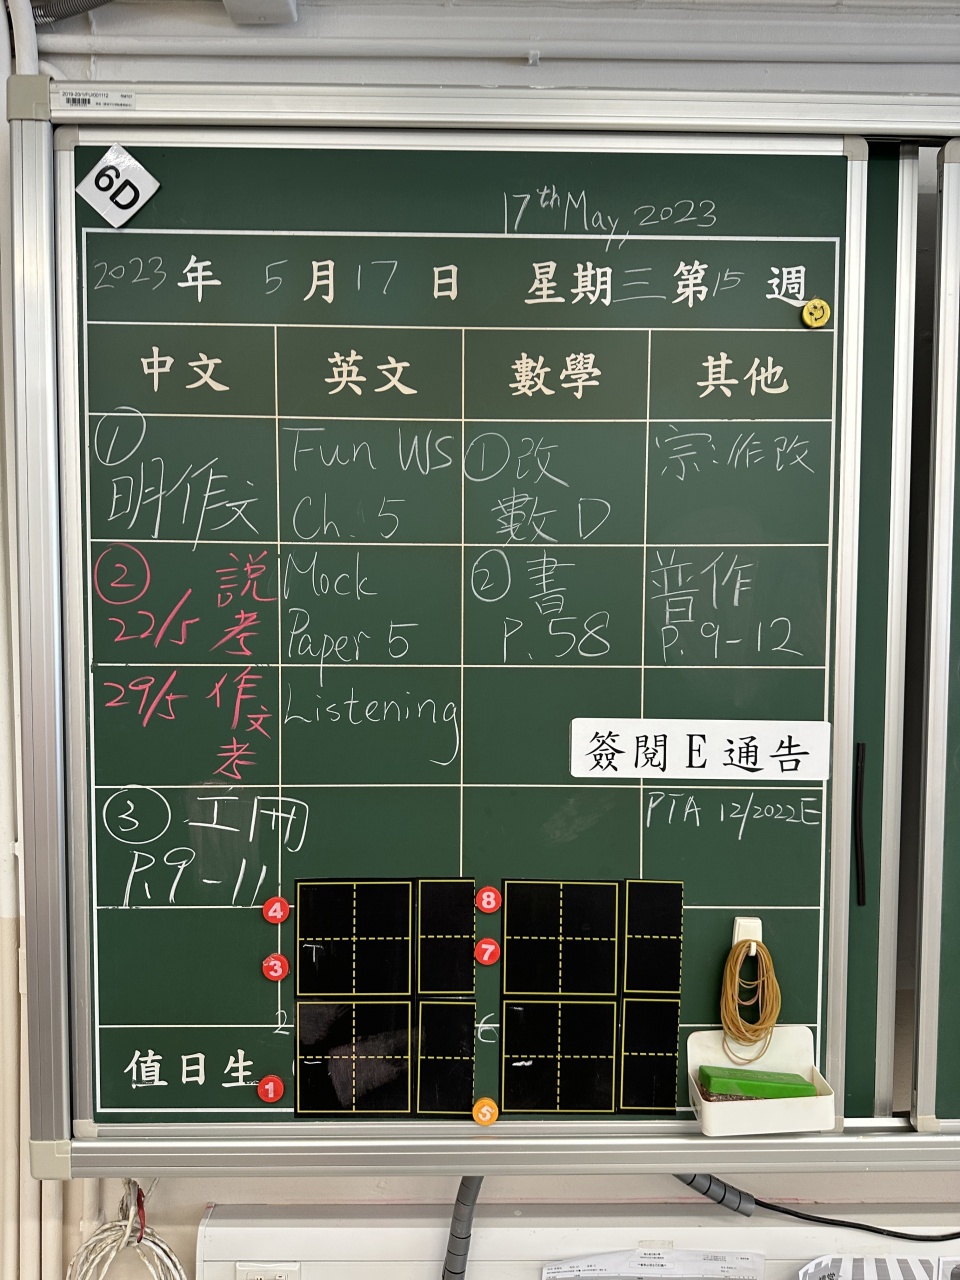 2019-20/1/FU/001112
6D
17th May, 2023
2023 年 5 月 17 日 星期 三 第 15 週
中文 英文 數學 其他
① 明作文
Fun WS Ch. 5
① 改 數 D
宗.作改
② 22/5 説考
Mock Paper 5
② 書 P. 58
普作 P. 9-12
29/5 作文考
Listening
簽閱 E 通告
③ 工冊 P. 9-11
PTA 12/2022E
4 8
3 7
2 6
值日生
1 5